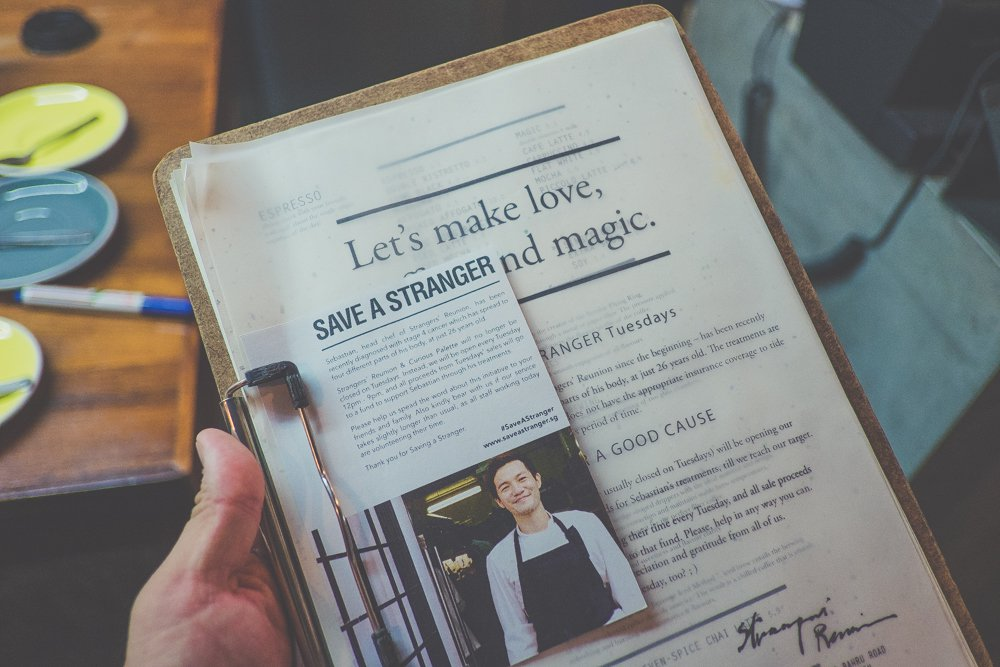 MAGIC
CAFE LATTE
FLAT WHITE
MOCHA
ESPRESSO
Let's make love,
nd magic.
SOY
SAVE A STRANGER
Sebastian, head chef of Strangers' Reunion, has been
recently diagnosed with stage 4 cancer which has spread to
four different parts of his body, at just 26 years old.
Strangers' Reunion & Curious Palette will no longer be
closed on Tuesdays! Instead, we will be open every Tuesday
12pm - 9pm, and all proceeds from Tuesdays' sales will go
to a fund to support Sebastian through his treatments.
Please help us spread the word about this initiative to your
friends and family. Also kindly bear with us if our service
takes slightly longer than usual, as all staff working today
are volunteering their time.
Thank you for Saving a Stranger.
#SaveAStranger
www.saveastranger.sg
RANGER Tuesdays
gers' Reunion since the beginning – has been recently
arts of his body, at just 26 years old. The treatments are
oes not have the appropriate insurance coverage to tide
period of time.
A GOOD CAUSE
usually closed on Tuesdays) will be opening our
ds for Sebastian's treatments, till we reach our target.
their time every Tuesday, and all sale proceeds
to that fund. Please, help in any way you can.
eciation and gratitude from all of us.
sday, too? ;)
-SPICE CHAI
5.9
Strangers' Reunion
ROAD